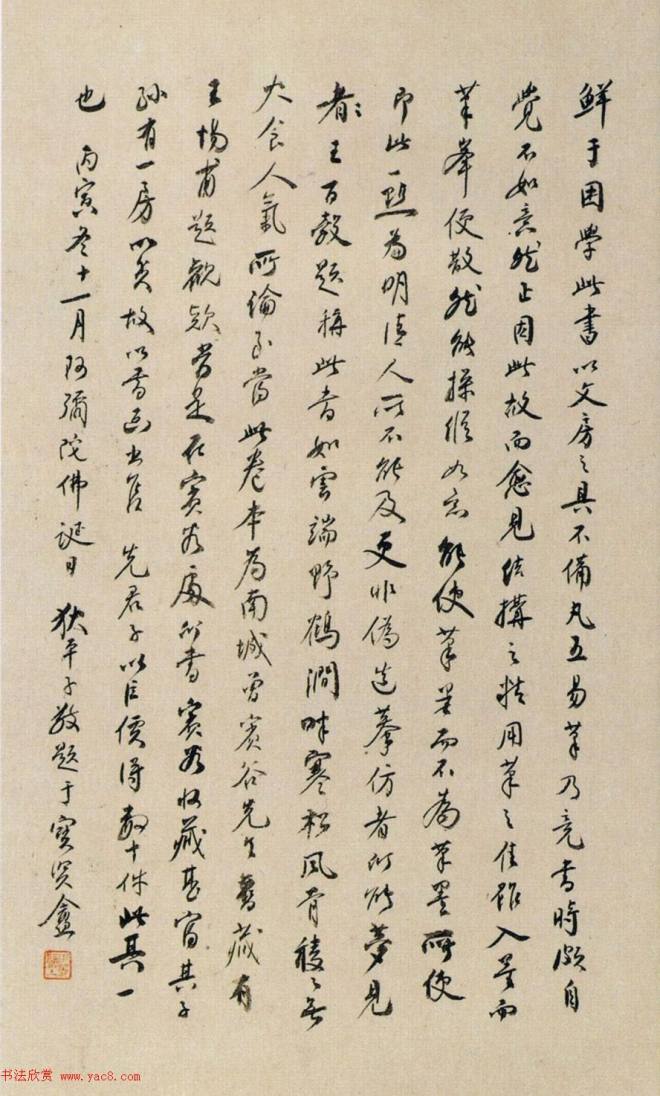 鮮于困學此書以文房之具不備凡五易筆乃竟書時頗自
覺不如意然正因此故而愈見結搆之精用筆之佳雖入墨而
筆峯便散然能操縱如意能使筆墨而不為筆墨所使
即此一點為明清人所不能及更非偽造摹仿者所能夢見
者〻王百穀題稱此書如雲端野鶴澗畔寒松風骨稜〻無
火食人氣所論至當此卷本為南城曾賓谷先生舊藏有
王惕甫題觀欵當是在賓谷處所書賓谷收藏甚富其子
孫有一房以貧故以書画出售 先君子以巨價得數十件此其一
也 丙寅冬十一月阿彌陀佛誕日 狄平子敬題于寶賢盦
书法欣赏 www.yac8.com